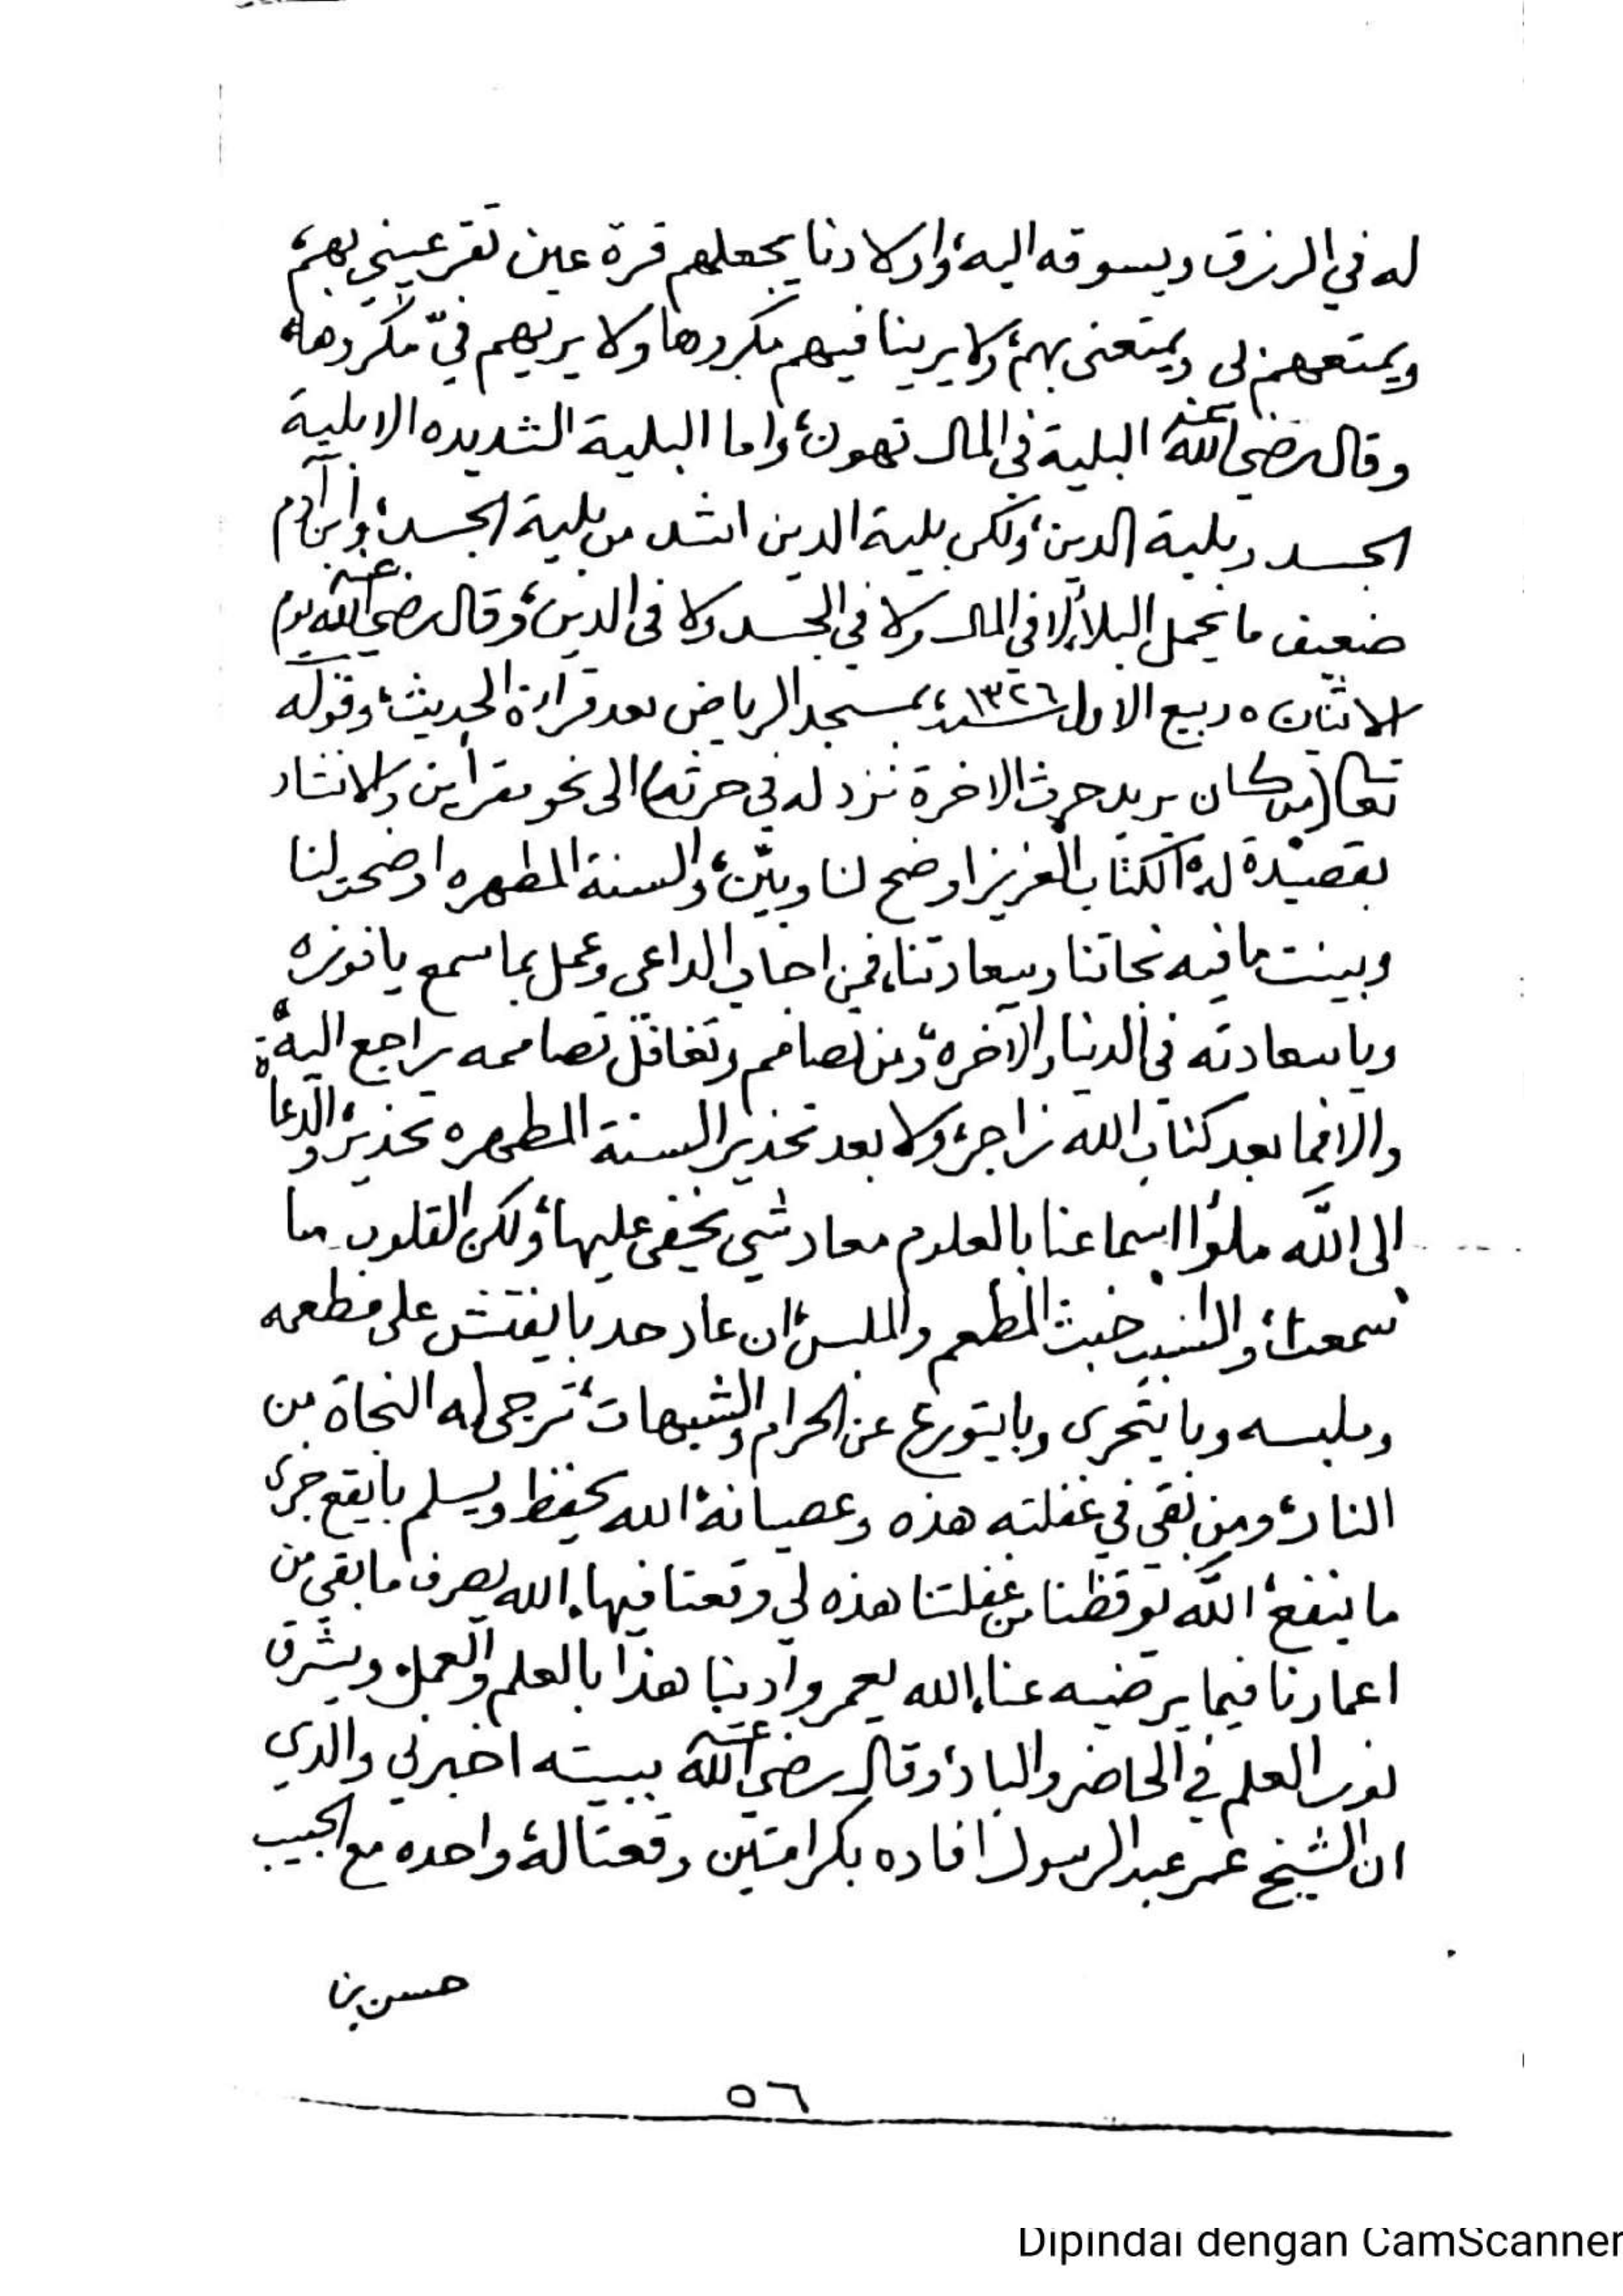 له في الرزق ويسوقه اليه، واولادنا يجعلهم قرة عين تقر عيني بهم،
ويمتعهم لي ويمتعني بهم، ولا يرينا فيهم مكروها ولا يريهم فيّ مكروها،
وقال رضي الله عنه البلية في المال تهون، واما البلية الشديده الا بلية
الجسد وبلية الدين، ولكن بلية الدين اشد من بلية الجسد، وابن آدم
ضعيف ما يحمل البلاء لا في المال ولا في الجسد ولا في الدين، وقال رضي الله عنه يوم
الاثنين ٥ ربيع الاول سنة ١٣٢٦ بمسجد الرياض بعد قراءة الحديث، وقوله
تعالى (من كان يريد حرث الاخرة نزد له في حرثه) الى نحو مقرأين والانشاد
بقصيدة له، الكتاب العزيز اوضح لنا وبيّن، والسنة المطهره اوضحت لنا
وبينت ما فيه نجاتنا وسعادتنا، فمن اجاب الداعي وعمل بما سمع يا فوزه
ويا سعادته في الدنيا والآخره، ومن تصامم وتغافل تصاممه يراجع اليه،
والا فما بعد كتاب الله زاجر، ولا بعد تحذير السنة المطهره تحذير، والدعاة
الى الله ملؤا اسماعنا بالعلوم معاد شي يخفى عليها، ولكن القلوب ما
سمعت، والسبب خبث المطعم والملبس، ان عاد حد با يفتش على مطعمه
وملبسه وبا يتحرى وبا يتورع عن الحرام والشبهات، ترجى له النجاة من
النار، ومن بقي في غفلته هذه وعصيانه، الله يحفظ ويسلم با يقع خزى
ما ينفع، الله يوقظنا من غفلتنا هذه لي وقعنا فيها، الله يصرف ما بقي من
اعمارنا فيما يرضيه عنا، الله يعمر وادينا هذا بالعلم والعمل، ويشرق
نور العلم في الحاضر والباد، وقال رضي الله عنه ببيته اخبرني والدي
ان الشيخ عمر عبد الرسول افاده بكرامتين وقعتا له، واحده مع الحبيب
حسن بن
٥٦
Dipindai dengan CamScanner